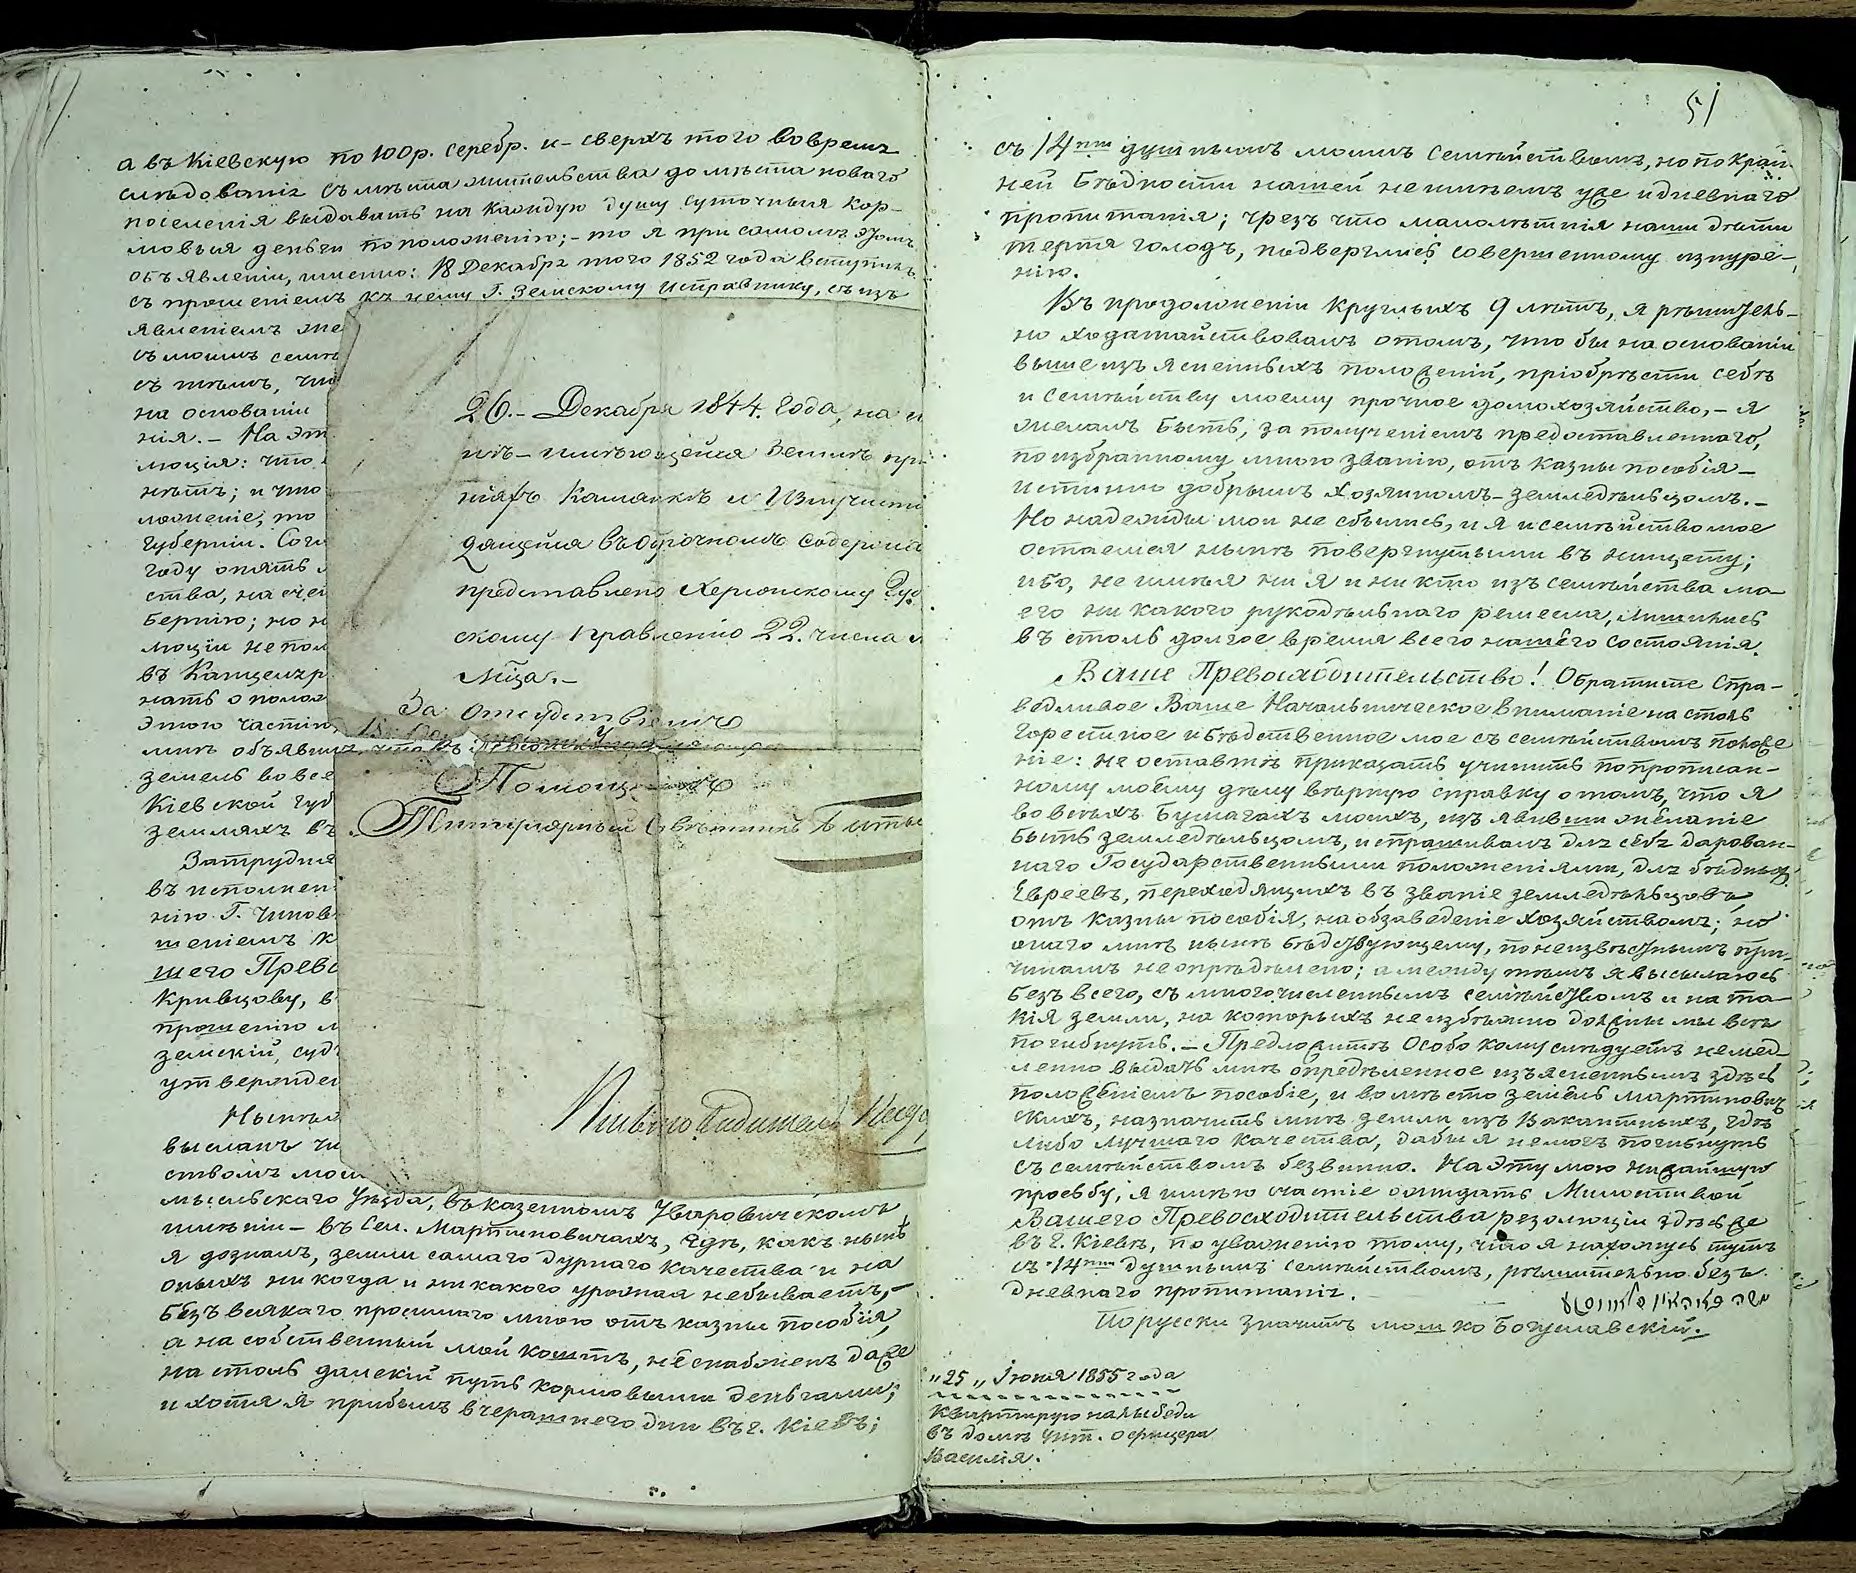 а въ Кіевскую по 100 р. серебр. и сверхъ того вовремя
слѣдованія съ мѣста жительства до мѣста новаго
поселенія выдавать на каждую душу суточныя кор-
мовыя деньги по положенію; - то я при самомъ этомъ
объявленіи, именно: 18 Декабря того 1852 года вступилъ
съ прошеніемъ къ нему Г. Земскому Исправнику, съ изъ
явленіемъ же
съ моимъ семе
съ тѣмъ, что
на основаніи
нія. - На эт
люція: что
нѣтъ; и что
ложеніе, то
Губерніи. Согл
году опять
ства, на счет
бернію; но н
люціи не пол
въ Канцеляр
нать о полож
этою частію,
мнѣ объявилъ, что въ
земель во все
Кіевской губ
земляхъ въ
Затрудня
въ исполнен
нію Г. Чинов
шеніемъ к
шего Прево
Кривцову, в
прошенію м
земскій, суд
утвержден
Нынѣ я
высланъ чи
ствомъ мои
мысльскаго Уѣзда, въ казенномъ Уваровическомъ
имѣніи - въ Сел. Мартиновичахъ, гдѣ, какъ нынѣ
я дозналъ, земли самаго дурнаго качества и на
оныхъ никогда и никакого урожая небываетъ, -
безъ всякаго просимаго мною отъ казны пособія,
а на собственный мой коштъ, не снабженъ даже
на столь далекій путь кормовыми деньгами;
и хотя я прибылъ вчерашнего дни въ г. Кіевъ;
26. - Декабря 1844. Года, на
нѣ - имѣющейся Землѣ пр
ніяхъ Камянкѣ и Излучист
дящейся въ оброчномъ содержа
представлено Херсонскому Губ
скому Правленію 22. числа
Мѣца. -
За отсудствіемъ
Помощникъ
Титулярный Совѣтникъ
51
съ 14ти душнымъ моимъ семѣйствомъ, но по край-
ней бѣдности нашей не имѣемъ уже и дневнаго
пропитанія; чрезъ что малолѣтнія наши дѣти
терпя голодъ, подверглись совершенному изнуре-
нію.
Въ продолженіи круглыхъ 9 лѣтъ, я рѣшитель-
но ходатайствовалъ отомъ, что бы на основаніи
вышеизъясненныхъ положеній, пріобрѣсти себѣ
и семѣйству моему прочное домохозяйство, - я
желалъ быть, за полученіемъ предоставленнаго,
по избранному мною званію, отъ казны пособія -
истинно добрымъ хозяиномъ - земледѣльцомъ. -
Но надежды мои не сбылись, и я и семѣйство мое
остаемся нынѣ повергнутыми въ нищету;
ибо, не имѣя ни я и ни кто изъ семѣйства мо-
его ни какого рукодѣльнаго ремесла, лишились
въ столь долгое время всего нашего состоянія.
Ваше Превосходительство! Обратите Спра-
ведливое Ваше Начальническое вниманіе на столь
горестное и бѣдственное мое съ семѣйствомъ положе
ніе: не оставьтѣ приказать учинить по прописан-
ному моему дѣлу вѣрную справку о томъ, что я
во всѣхъ бумагахъ моихъ, изъявивши желаніе
быть земледѣльцомъ, испрашивалъ для себя дарован-
наго Государственными положеніями, для бѣдныхъ
Евреевъ, переходящихъ въ званіе земледѣльцовъ
отъ казны пособія, на обзаведеніе хозяйствомъ; но
онаго мнѣ нынѣ бѣдствующему, по неизвѣстнымъ при-
чинамъ не опредѣлено; а между тѣмъ я высылаюсь
безъ всего, съ многочисленнымъ семѣйствомъ и на та-
кія земли, на которыхъ неизбѣжно должны мы всѣ
погибнуть. - Предложитѣ Особо кому слѣдуетъ немед-
ленно выдать мнѣ опредѣленное изъясненнымъ здѣсь
положеніемъ пособіе, и вомѣсто земель Мартинович
скихъ, назначить мнѣ земли изъ Вакантныхъ, гдѣ
либо лучшаго качества, дабы я немогъ погибнуть
съ семѣйствомъ безвинно. На эту мою нижайшую
просьбу, я имѣю счастіе ожидать Милостивой
Вашего Превосходительства резолюціи здѣсь же
въ г. Кіевѣ, по уваженію тому, что я нахожусь тутъ
съ 14ти душнымъ семѣйствомъ, рѣшительно безъ
дневнаго пропитанія.
По русски значитъ Мошко Богуславскій.
"25" Іюня 1855 года
Квартирую на Лыбеди
въ домѣ унт. офицера
Василія.